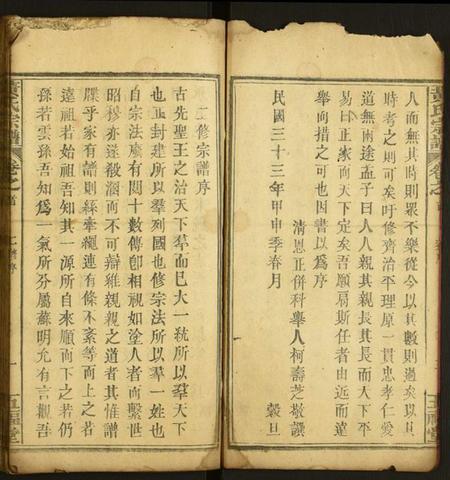 黃氏宗譜
卷之首
人而無其時則眾不樂從今以其數則過矣以其
時考之則可矣吁修齊治平理原一貫忠孝仁愛
道無兩途孟子曰人人親其親長其長而天下平
易曰正家而天下定矣吾願肩斯任者由近而遠
舉而措之可也因書以爲序
清恩正併科舉人柯壽芝敬譔
民國三十三年甲申季春月
穀旦
五福堂
二修宗譜序
古先聖王之治天下羣而巳大一統所以羣天下
也正封建所以羣列國也修宗法所以羣一姓也
自宗法廢有閱十數傳卽相視如塗人者而繫世
昭穆亦遂殽溷而不可辯維親親之道者其惟譜
牒乎家有譜則絲牽繩連有條不紊等而上之若
遠祖若始祖吾知其一源所自來順而下之若仍
孫若雲孫吾知爲一氣所分屬蘇明允有言觀吾
黃氏宗譜
卷之首
二修序
一
五福堂